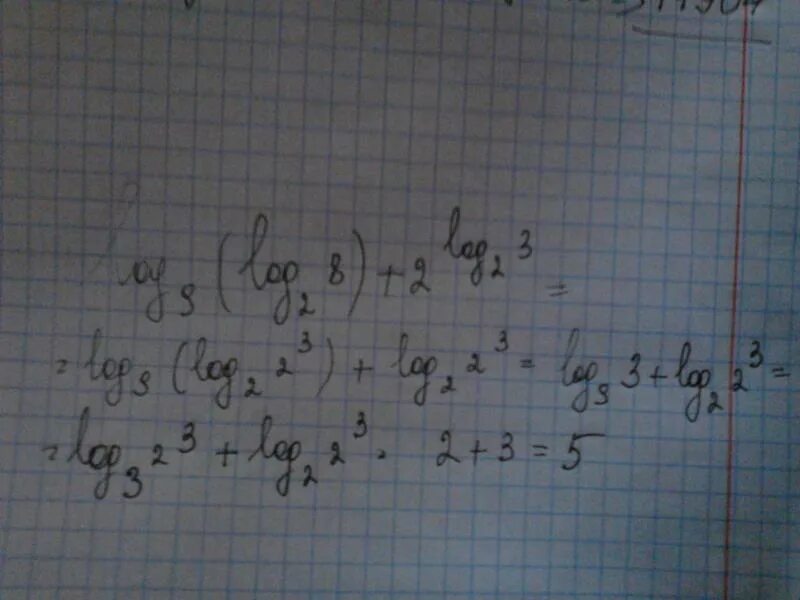 log₉(log₂ 8) + 2^{log₂ 3} =
= log₉(log₂ 2³) + log₂ 2³ = log₉ 3 + log₂ 2³ =
= log₃2 3 + log₂ 2³ = 2 + 3 = 5